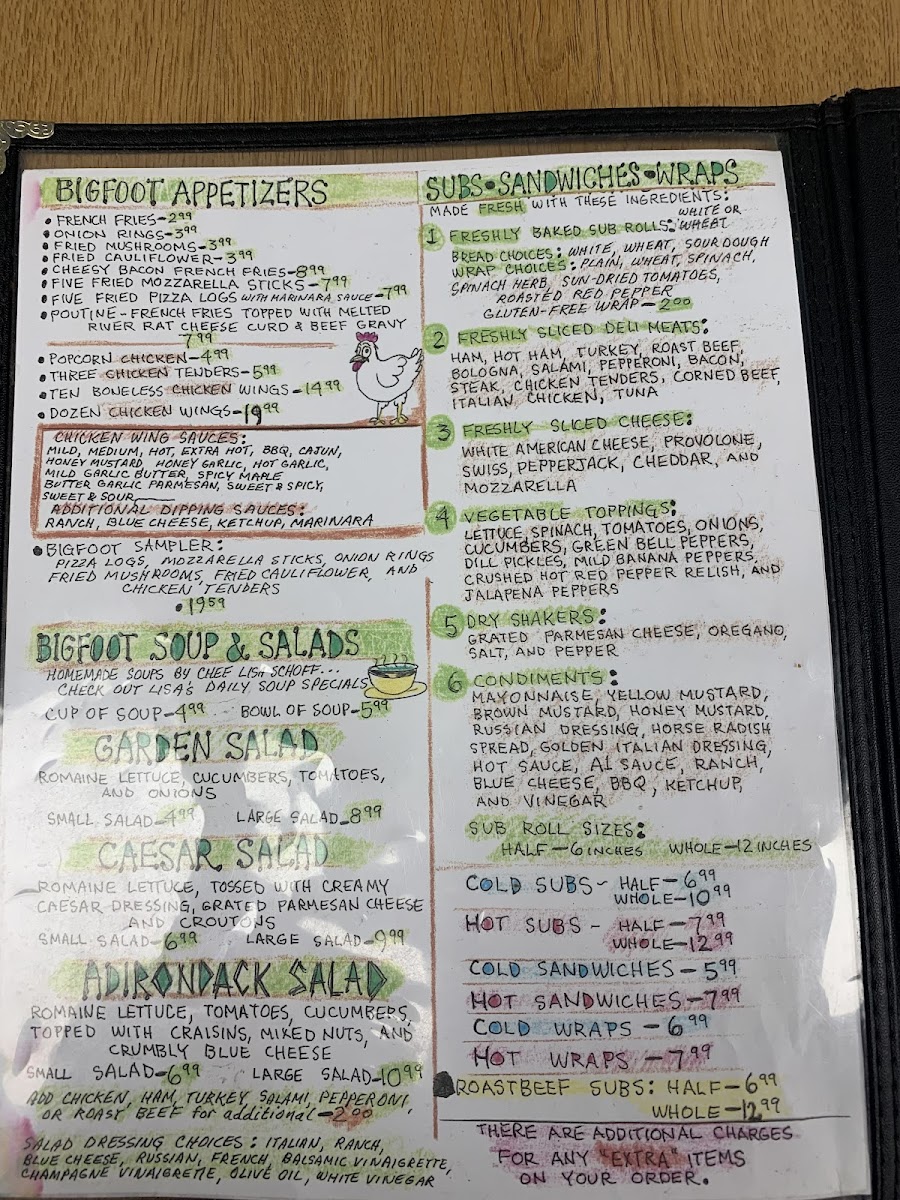 BIGFOOT APPETIZERS
• FRENCH FRIES-2.99
• ONION RINGS-3.99
• FRIED MUSHROOMS-3.99
• FRIED CAULIFLOWER-3.99
• CHEESY BACON FRENCH FRIES-8.99
• FIVE FRIED MOZZARELLA STICKS-7.99
• FIVE FRIED PIZZA LOGS WITH MARINARA SAUCE-7.99
• POUTINE-FRENCH FRIES TOPPED WITH MELTED
RIVER RAT CHEESE CURD & BEEF GRAVY
7.99
• POPCORN CHICKEN-4.99
• THREE CHICKEN TENDERS-5.99
• TEN BONELESS CHICKEN WINGS-14.99
• DOZEN CHICKEN WINGS-19.99
CHICKEN WING SAUCES:
MILD, MEDIUM, HOT, EXTRA HOT, BBQ, CAJUN,
HONEY MUSTARD, HONEY GARLIC, HOT GARLIC,
MILD GARLIC BUTTER, SPICY MAPLE
BUTTER GARLIC PARMESAN, SWEET & SPICY,
SWEET & SOUR
ADDITIONAL DIPPING SAUCES:
RANCH, BLUE CHEESE, KETCHUP, MARINARA
• BIGFOOT SAMPLER:
PIZZA LOGS, MOZZARELLA STICKS, ONION RINGS
FRIED MUSHROOMS, FRIED CAULIFLOWER, AND
CHICKEN TENDERS
• 19.59
BIGFOOT SOUP & SALADS
HOMEMADE SOUPS BY CHEF LISA SCHOFF...
CHECK OUT LISA'S DAILY SOUP SPECIALS
CUP OF SOUP-4.99 BOWL OF SOUP-5.99
GARDEN SALAD
ROMAINE LETTUCE, CUCUMBERS, TOMATOES,
AND ONIONS
SMALL SALAD-4.99 LARGE SALAD-8.99
CAESAR SALAD
ROMAINE LETTUCE, TOSSED WITH CREAMY
CAESAR DRESSING, GRATED PARMESAN CHEESE
AND CROUTONS
SMALL SALAD-6.99 LARGE SALAD-9.99
ADIRONDACK SALAD
ROMAINE LETTUCE, TOMATOES, CUCUMBERS,
TOPPED WITH CRAISINS, MIXED NUTS, AND
CRUMBLY BLUE CHEESE
SMALL SALAD-6.99 LARGE SALAD-10.99
ADD CHICKEN, HAM, TURKEY, SALAMI, PEPPERONI,
OR ROAST BEEF for additional-2.00
SALAD DRESSING CHOICES: ITALIAN, RANCH,
BLUE CHEESE, RUSSIAN, FRENCH, BALSAMIC VINAIGRETTE,
CHAMPAGNE VINAIGRETTE, OLIVE OIL, WHITE VINEGAR
SUBS•SANDWICHES•WRAPS
MADE FRESH WITH THESE INGREDIENTS:
1 FRESHLY BAKED SUB ROLLS: WHITE OR
WHEAT
BREAD CHOICES: WHITE, WHEAT, SOUR DOUGH
WRAP CHOICES: PLAIN, WHEAT, SPINACH,
SPINACH HERB, SUN-DRIED TOMATOES,
ROASTED RED PEPPER
GLUTEN-FREE WRAP-2.00
2 FRESHLY SLICED DELI MEATS:
HAM, HOT HAM, TURKEY, ROAST BEEF,
BOLOGNA, SALAMI, PEPPERONI, BACON,
STEAK, CHICKEN TENDERS, CORNED BEEF,
ITALIAN CHICKEN, TUNA
3 FRESHLY SLICED CHEESE:
WHITE AMERICAN CHEESE, PROVOLONE,
SWISS, PEPPERJACK, CHEDDAR, AND
MOZZARELLA
4 VEGETABLE TOPPINGS:
LETTUCE, SPINACH, TOMATOES, ONIONS,
CUCUMBERS, GREEN BELL PEPPERS,
DILL PICKLES, MILD BANANA PEPPERS,
CRUSHED HOT RED PEPPER RELISH, AND
JALAPENA PEPPERS
5 DRY SHAKERS:
GRATED PARMESAN CHEESE, OREGANO,
SALT, AND PEPPER
6 CONDIMENTS:
MAYONNAISE, YELLOW MUSTARD,
BROWN MUSTARD, HONEY MUSTARD,
RUSSIAN DRESSING, HORSE RADISH
SPREAD, GOLDEN ITALIAN DRESSING,
HOT SAUCE, A1 SAUCE, RANCH,
BLUE CHEESE, BBQ, KETCHUP,
AND VINEGAR
SUB ROLL SIZES:
HALF-6 INCHES WHOLE-12 INCHES
COLD SUBS- HALF-6.99
WHOLE-10.99
HOT SUBS- HALF-7.99
WHOLE-12.99
COLD SANDWICHES-5.99
HOT SANDWICHES-7.99
COLD WRAPS-6.99
HOT WRAPS-7.99
ROASTBEEF SUBS: HALF-6.99
WHOLE-12.99
THERE ARE ADDITIONAL CHARGES
FOR ANY "EXTRA" ITEMS
ON YOUR ORDER.